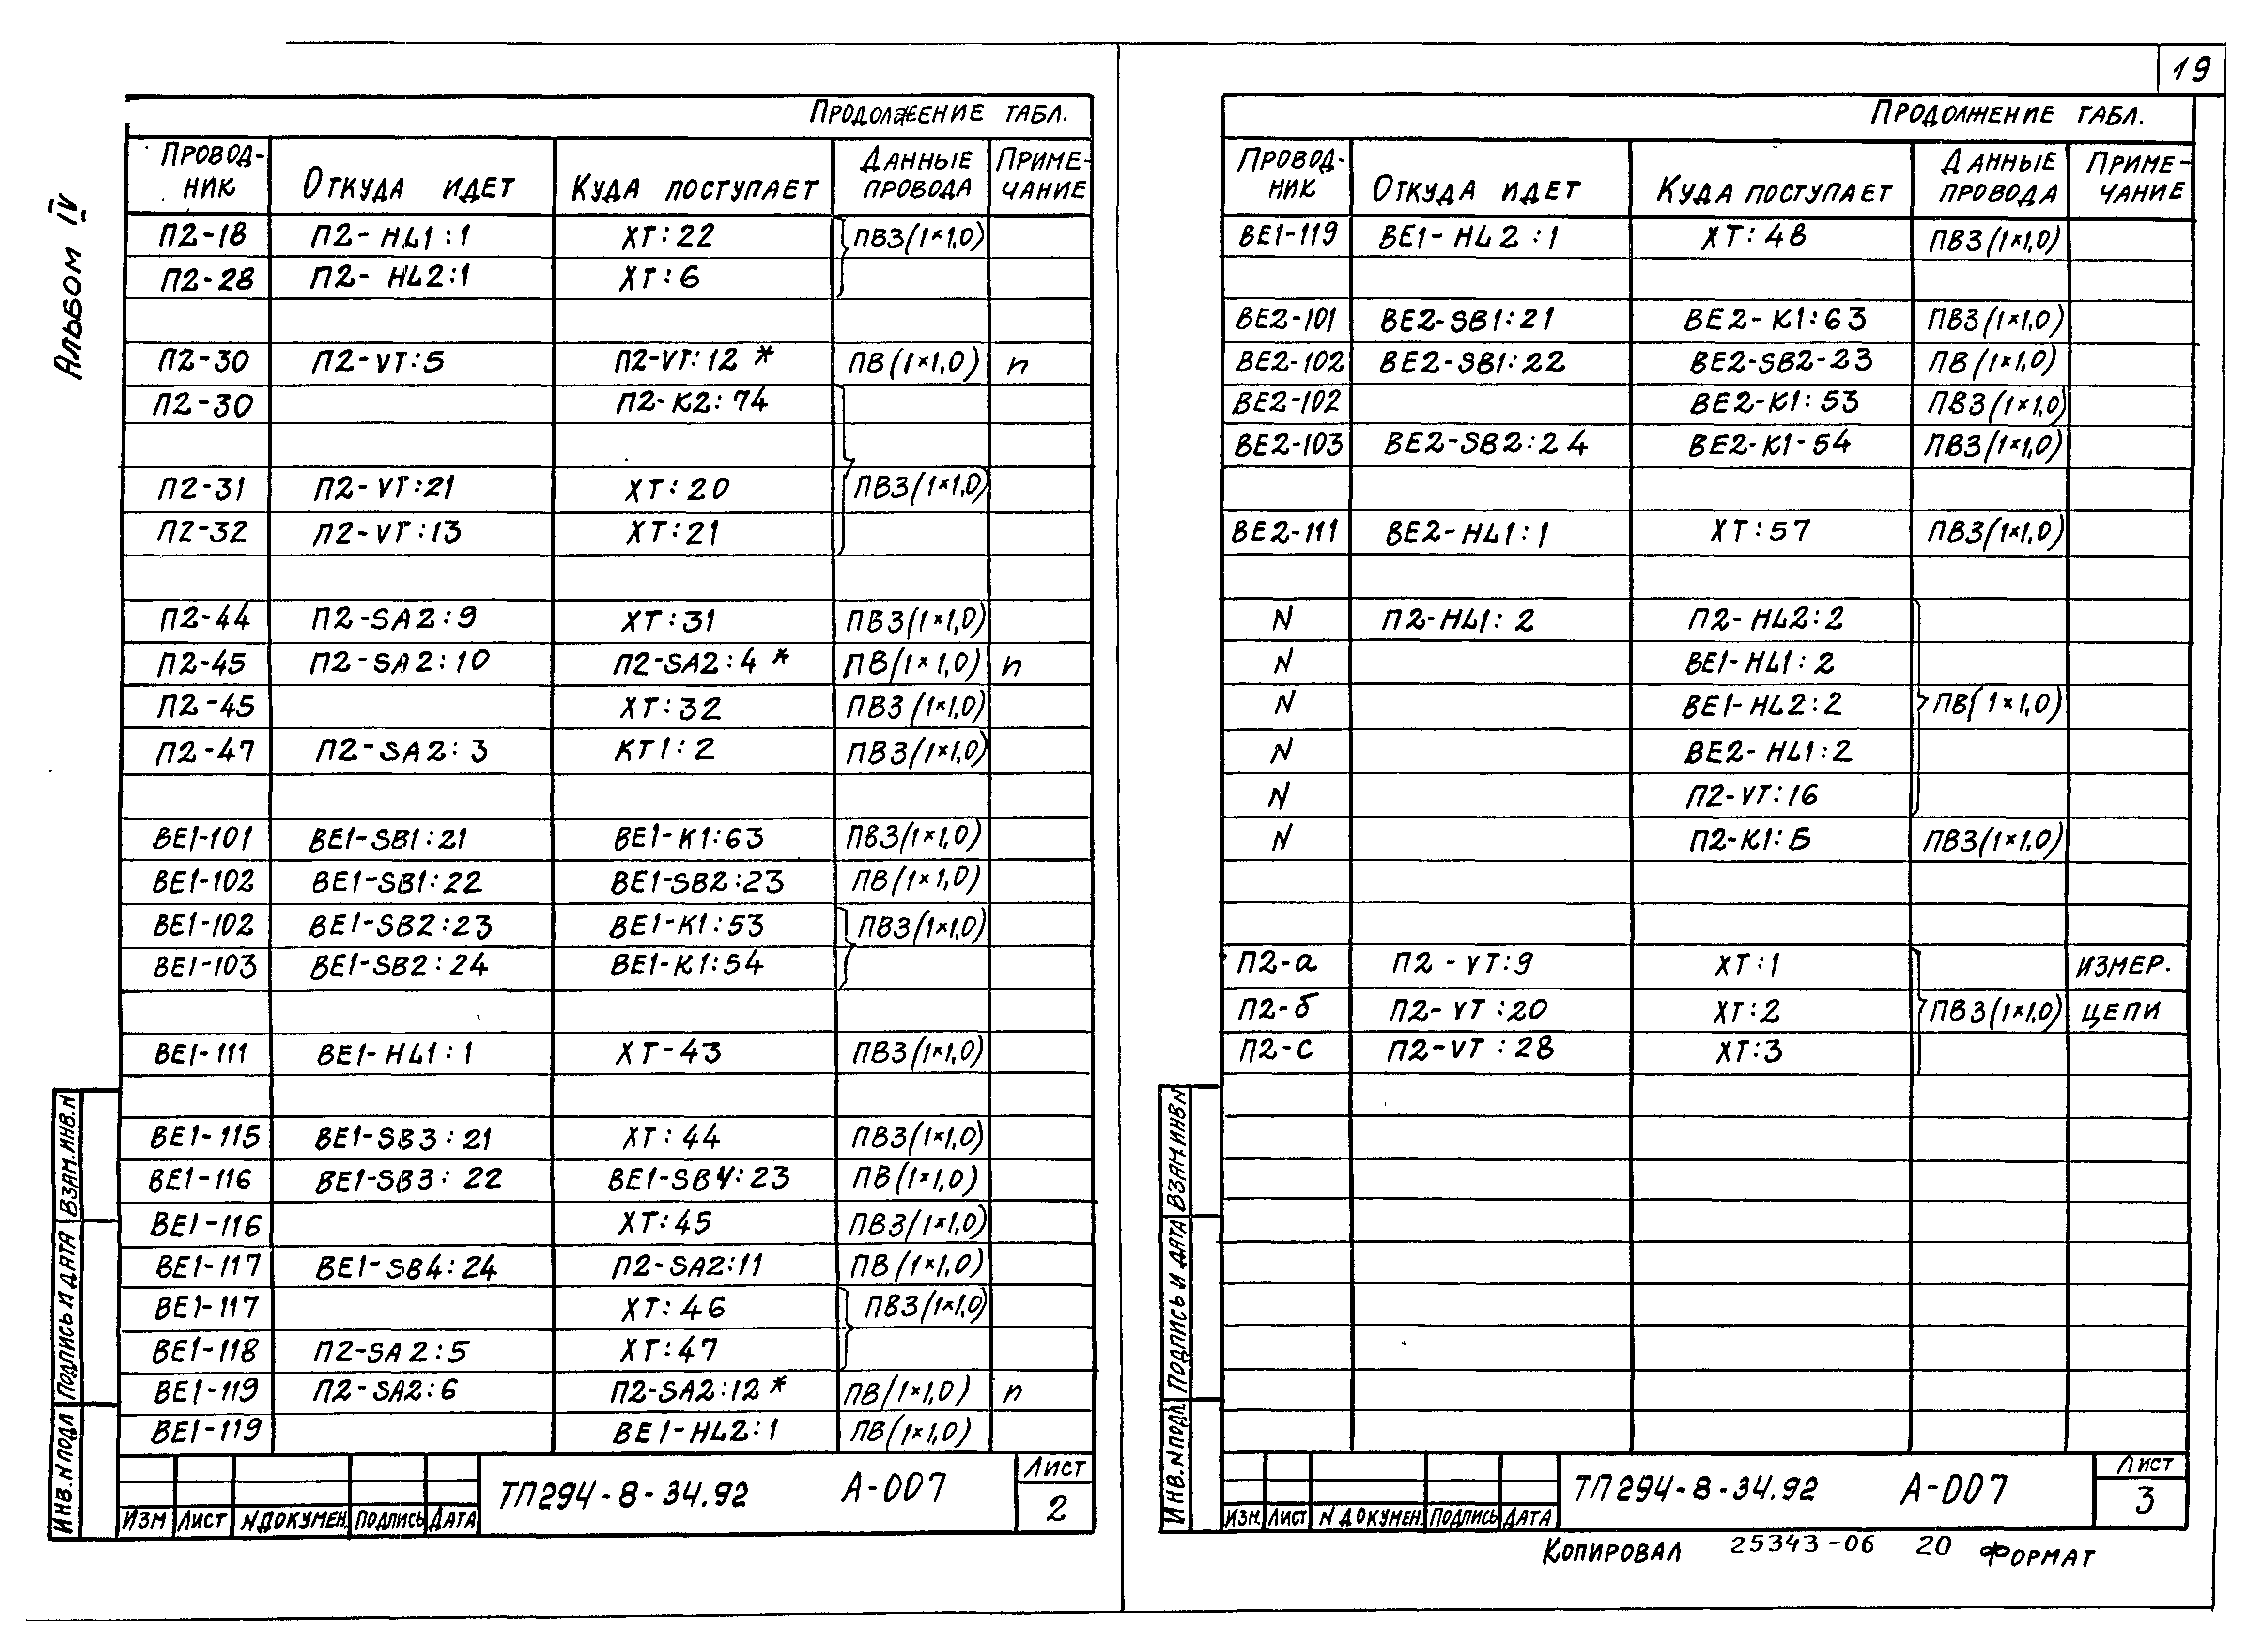 19
Альбом IV
Продолжение табл.
Провод-ник Откуда идет Куда поступает Данные провода Приме-чание
П2-18 П2-HL1:1 ХТ:22 ПВ3(1×1,0)
П2-28 П2-HL2:1 ХТ:6
П2-30 П2-VT:5 П2-VT:12 * ПВ(1×1,0) п
П2-30 П2-К2:74
П2-31 П2-VT:21 ХТ:20 ПВ3(1×1,0)
П2-32 П2-VT:13 ХТ:21
П2-44 П2-SA2:9 ХТ:31 ПВ3(1×1,0)
П2-45 П2-SA2:10 П2-SA2:4 * ПВ(1×1,0) п
П2-45 ХТ:32 ПВ3(1×1,0)
П2-47 П2-SA2:3 КТ1:2 ПВ3(1×1,0)
ВЕ1-101 ВЕ1-SB1:21 ВЕ1-К1:63 ПВ3(1×1,0)
ВЕ1-102 ВЕ1-SB1:22 ВЕ1-SB2:23 ПВ(1×1,0)
ВЕ1-102 ВЕ1-SB2:23 ВЕ1-К1:53 ПВ3(1×1,0)
ВЕ1-103 ВЕ1-SB2:24 ВЕ1-К1:54
ВЕ1-111 ВЕ1-HL1:1 ХТ-43 ПВ3(1×1,0)
ВЕ1-115 ВЕ1-SB3:21 ХТ:44 ПВ3(1×1,0)
ВЕ1-116 ВЕ1-SB3:22 ВЕ1-SB4:23 ПВ(1×1,0)
ВЕ1-116 ХТ:45 ПВ3(1×1,0)
ВЕ1-117 ВЕ1-SB4:24 П2-SA2:11 ПВ(1×1,0)
ВЕ1-117 ХТ:46 ПВ3(1×1,0)
ВЕ1-118 П2-SA2:5 ХТ:47
ВЕ1-119 П2-SA2:6 П2-SA2:12 * ПВ(1×1,0) п
ВЕ1-119 ВЕ1-HL2:1 ПВ(1×1,0)
Взам.инв.N
Подпись и дата
Инв.N подл
Изм Лист N докумен. Подпись Дата
ТП294-8-34.92 А-007
Лист
2
Продолжение табл.
Провод-ник Откуда идет Куда поступает Данные провода Приме-чание
ВЕ1-119 ВЕ1-HL2:1 ХТ:48 ПВ3(1×1,0)
ВЕ2-101 ВЕ2-SB1:21 ВЕ2-К1:63 ПВ3(1×1,0)
ВЕ2-102 ВЕ2-SB1:22 ВЕ2-SB2-23 ПВ(1×1,0)
ВЕ2-102 ВЕ2-К1:53 ПВ3(1×1,0)
ВЕ2-103 ВЕ2-SB2:24 ВЕ2-К1-54 ПВ3(1×1,0)
ВЕ2-111 ВЕ2-HL1:1 ХТ:57 ПВ3(1×1,0)
N П2-HL1:2 П2-HL2:2
N ВЕ1-HL1:2
N ВЕ1-HL2:2 ПВ(1×1,0)
N ВЕ2-HL1:2
N П2-VT:16
N П2-К1:Б ПВ3(1×1,0)
П2-а П2-VT:9 ХТ:1 Измер.
П2-б П2-VT:20 ХТ:2 ПВ3(1×1,0) цепи
П2-с П2-VT:28 ХТ:3
Взам.инв.N
Подпись и дата
Инв.N подл
Изм. Лист N докумен. Подпись Дата
ТП294-8-34.92 А-007
Лист
3
Копировал 25343-06 20 Формат